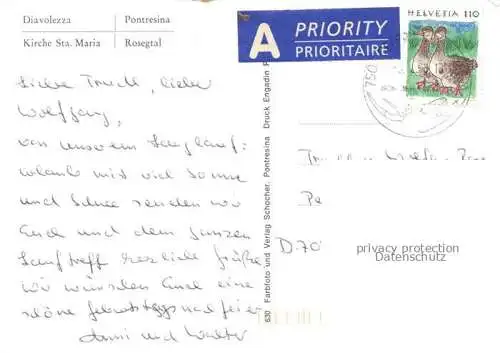 Diavolezza | Pontresina
Kirche Sta. Maria | Rosegtal
A PRIORITY
PRIORITAIRE
HELVETIA 110
750
Liebe Trudi, lieber
Wolfgang,
von unserem Langlauf-
urlaub mit viel Sonne
und Schnee senden wir
Euch und dem ganzen
Lauftreff herzliche Grüße
wir wünschen Euch eine
schöne Geburtstagsnachfeier
und Walter
630 Farbfoto und Verlag Schocher, Pontresina Druck Engadin
D. 70
privacy protection
Datenschutz